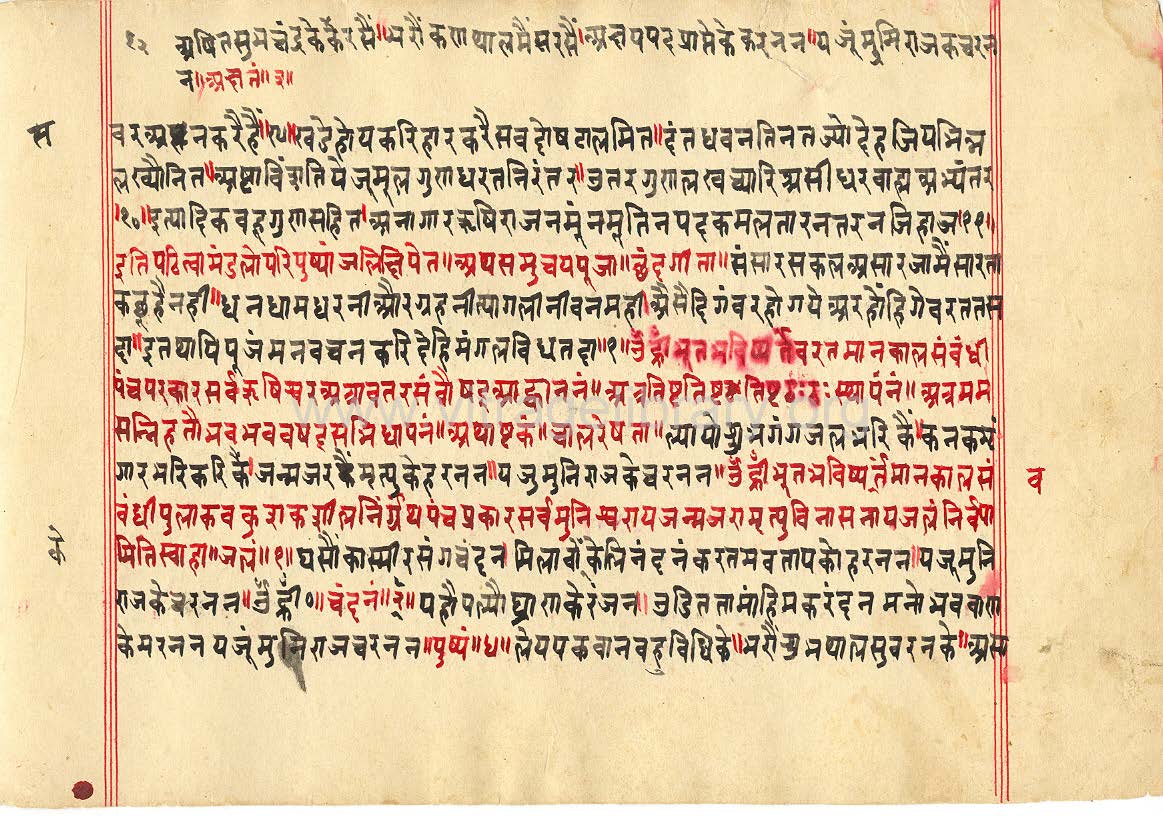 १२ अषितसुभचंद्रकेर्केरसैं॥भरौंकणथालमैंसरसैं।अक्षयपदप्राप्तेकेकरनन॥यजूंमुनिराजकेचरन
न॥अक्षतं॥३॥
स वरअशनकरैंहैं॥९॥षडेहोयकरिहारकरैसबदोषटालमित॥दंतधवनतिनतज्योदेहजियभिन्न
लख्यौनित॥अष्टाविंशतियेजुमूलगुणधरतनिरंतर॥उतरगुणलखच्यारिअसीधरबाह्यअभ्यंतर
॥१०॥इत्यादिकबहूगुणसहित।अनागारऋषिराजनमूंनमूंतिनपदकमलतारनतरनजिहाज॥११॥
इतिपठित्वामंडुलोपरिपुष्पांजलिंक्षिपेत॥अथसमुच्चयपूजा॥छंदगीता॥संसारसकलअसारजामैंसारता
कछूहैनही॥धनधामधरनीऔरग्रहनीत्यागलीनीवनमही।अैसैदिगंबरहोगयेअरहोंहिगेवरततस
दा॥इतथापिपूजूंमनवचनकरिदेहिमंगलविधतदा॥१॥ॐह्रींभूतभविष्यतवरतमानकालसंबंधी
पंचपरकारसर्वऋषिश्वरअत्रावतरसंवौषट्आह्वाननं॥अत्रतिष्टतिष्टतिष्टठःठःस्थापनं॥अत्रमम
सन्निहतौभवभववषट्सन्निधापनं॥अथाष्टकं॥चालरेषता॥ल्यायोशुभगंगजलभरिकैं।कनकभृं
गारभरिकरिकैं।जन्मजरमृत्युकेहरनन॥यजुमुनिराजकेचरनन॥ॐह्रींभूतभविष्यर्तमानकालसं व
बंधीपुलाकवकुशकुशीलनिर्ग्रंथपंचप्रकारसर्वमुनिश्वरायजन्मजरामृत्युविनासनायजलंनिर्वपा
मितिस्वाहा॥जलं॥१॥घसौंकास्मीरसंगचंदन।मिलावौंकेलिनंदनंकरतभवतापकोहरनन।यजूमुनि
के राजकेचरनन॥ॐह्रीं०॥चंदनं॥२॥यहौपल्यौघ्राणकेरंजन॥उडिततामांहिमकरंदनमनोभवबाण
केमरननयजूंमुनिराजचरनन॥पुष्पं॥४॥लेयपकवानबहूविधिके॥भरौंशुभथालसुवरनके॥अस
www.vitragelibrary.org